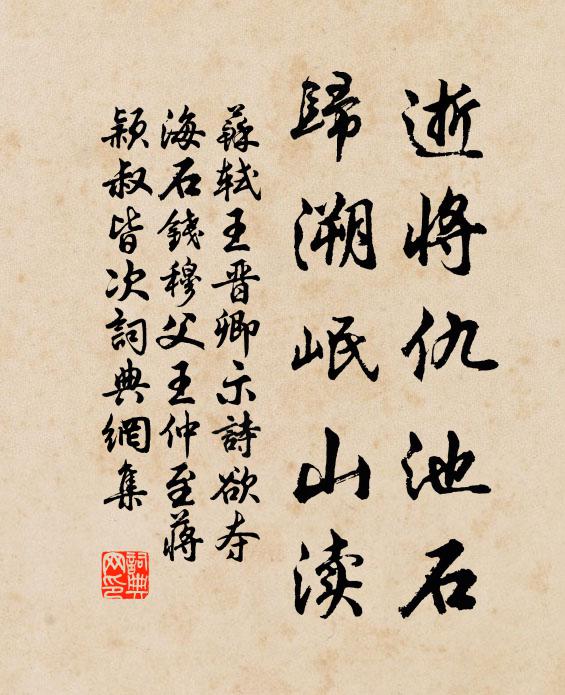 逝將仇池石
歸溯岷山渎
蘇軾王晋卿示詩欲夺
海石錢穆父王仲至蒋
颖叔皆次詞典網集
詞典网印